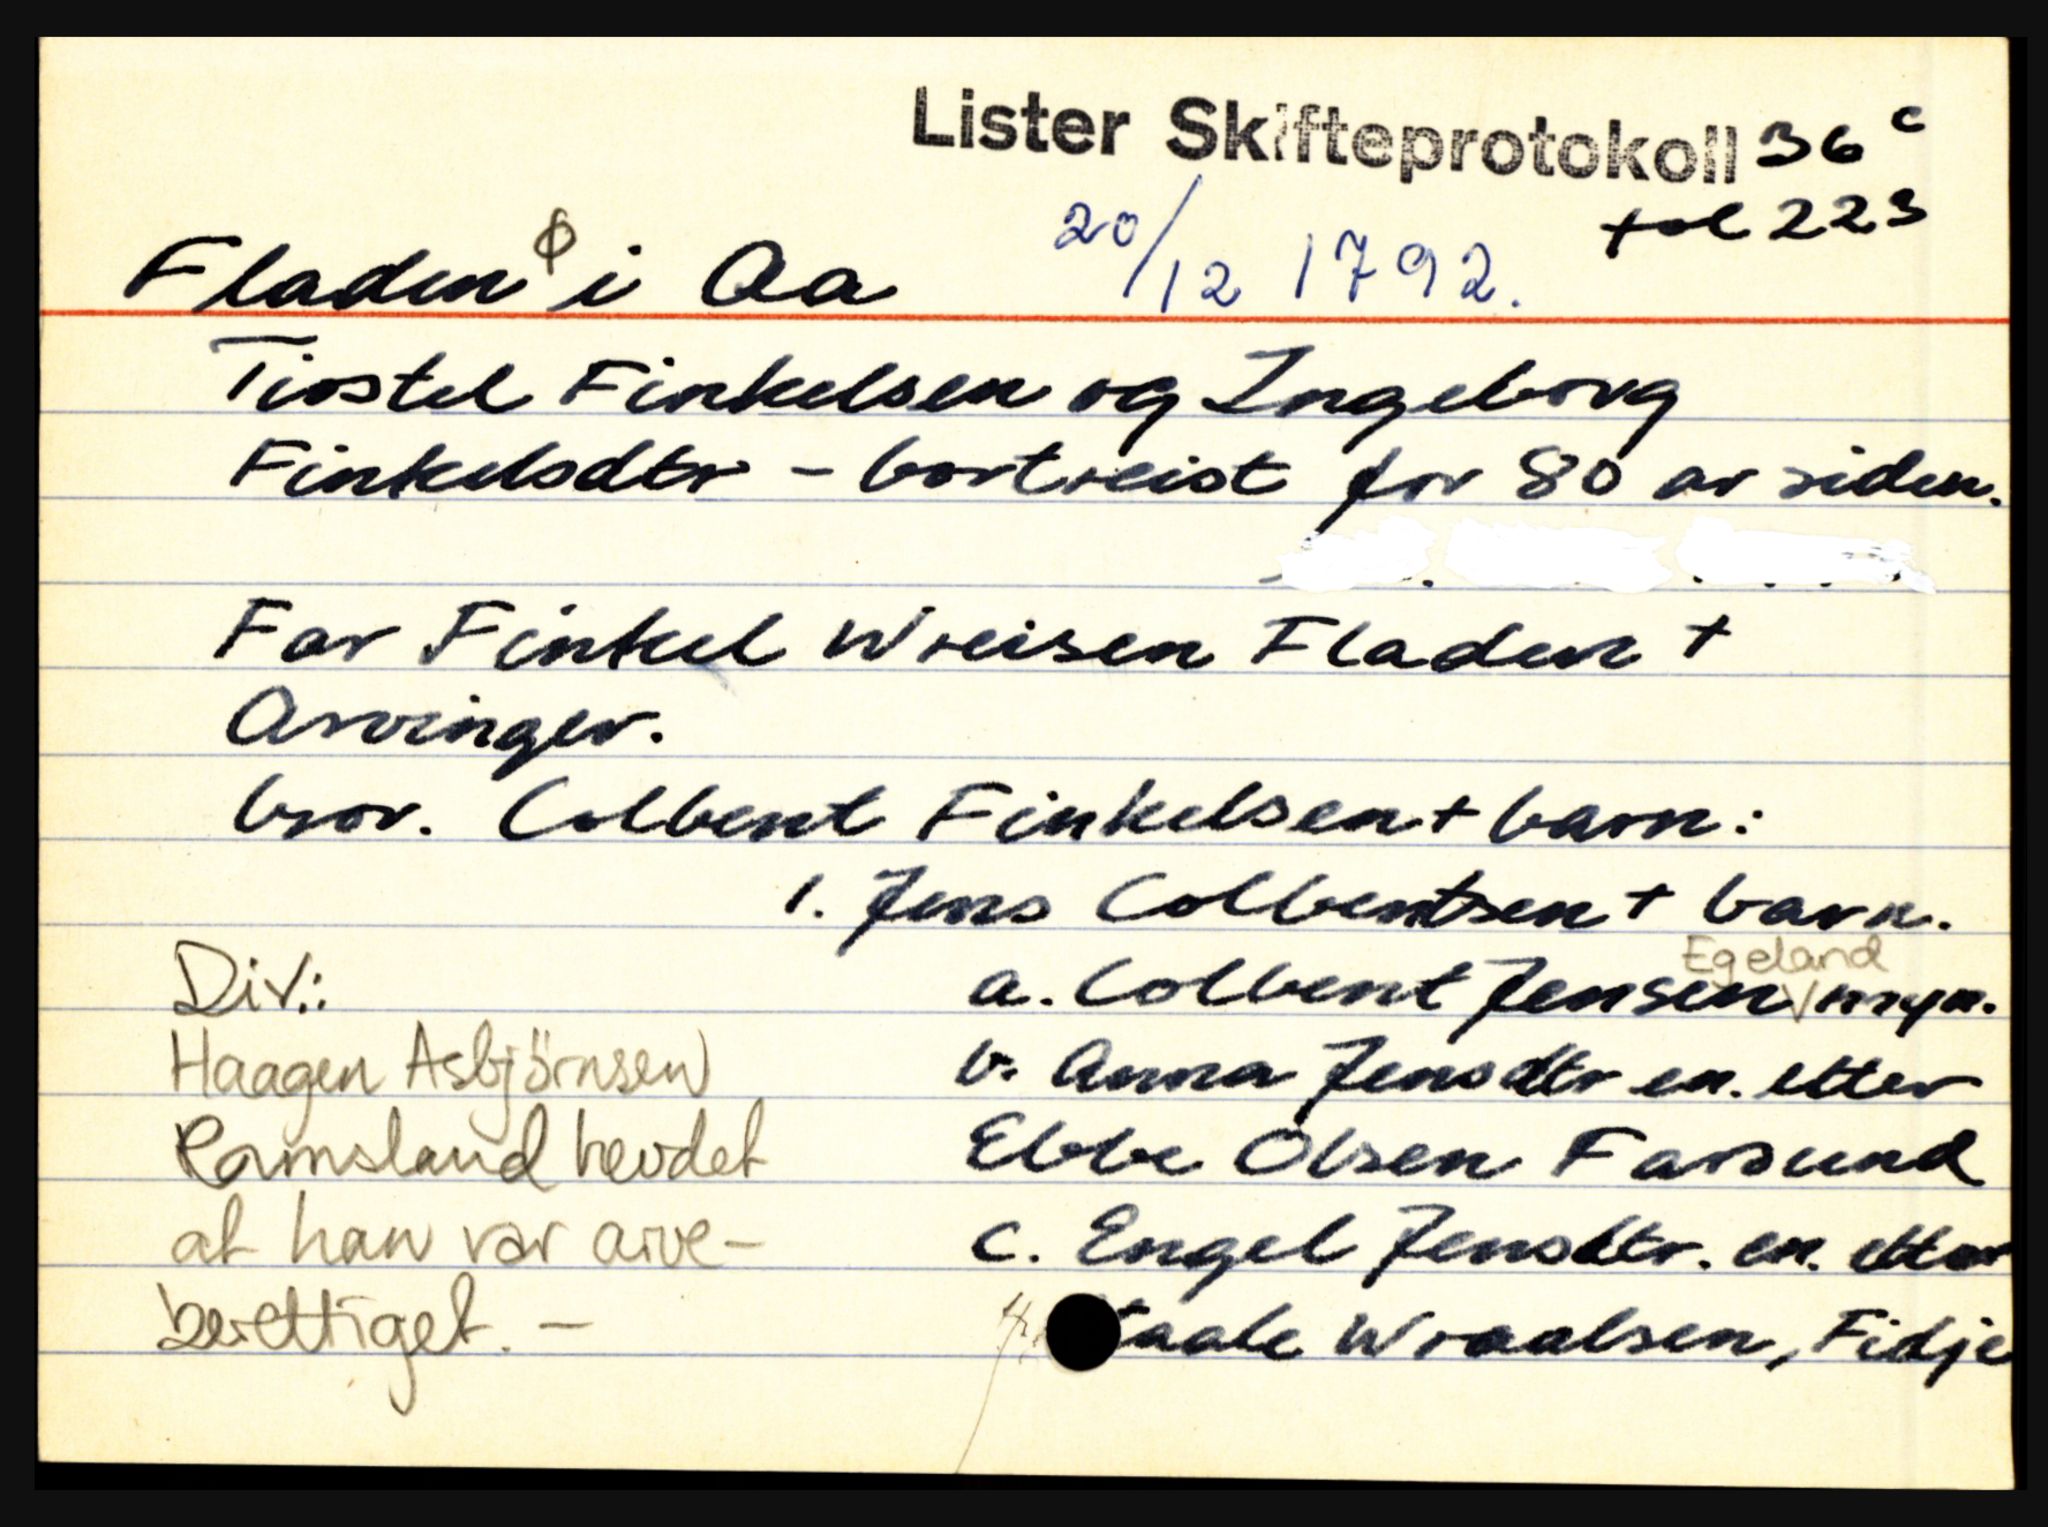 Lister Skifteprotokoll 36 c
fol 223
Fladen ø i Aa 20/12 1792.
Tiostel Finkelsen og Ingeborg
Finkelsdtr - bortreist for 80 ar siden.
Far Finkel Wreisen Fladen +
Arvinger.
bror. Colbent Finkelsen + barn:
1. Jens Colbentsen + barn.
a. Colbent Jensen Egeland myn.
b. Anna Jensdtr en. etter
Ebbe Olsen Farsund
c. Engel Jensdtr. en. etter
Staale Wraalsen, Fidje
Div.:
Haagen Asbjörnsen
Ramsland hevdet
at han var arve-
berettiget. -